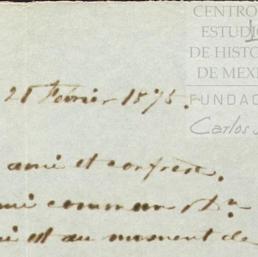 CENTRO
ESTUDI
DE HISTO
DE MEXI
FUNDAC
Carlos
Février 1875.
ami et confrère.
commun
est au moment de